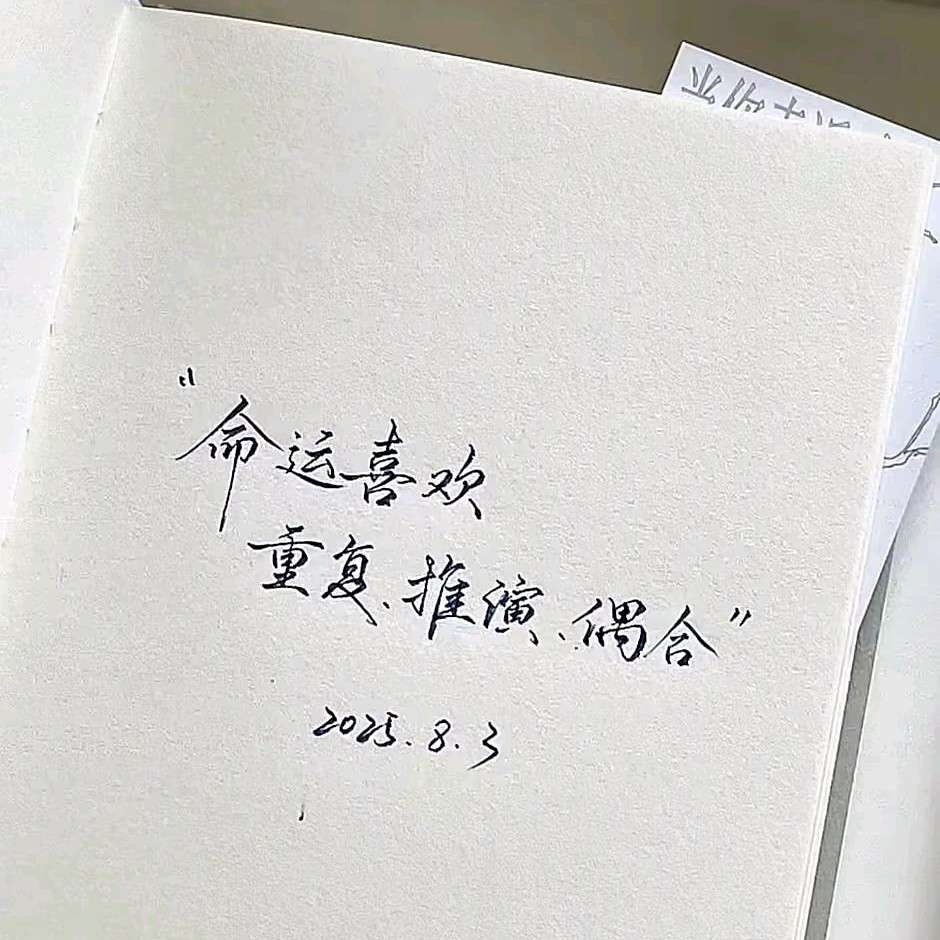 “命运喜欢
重复、推演、偶合”
2025.8.3